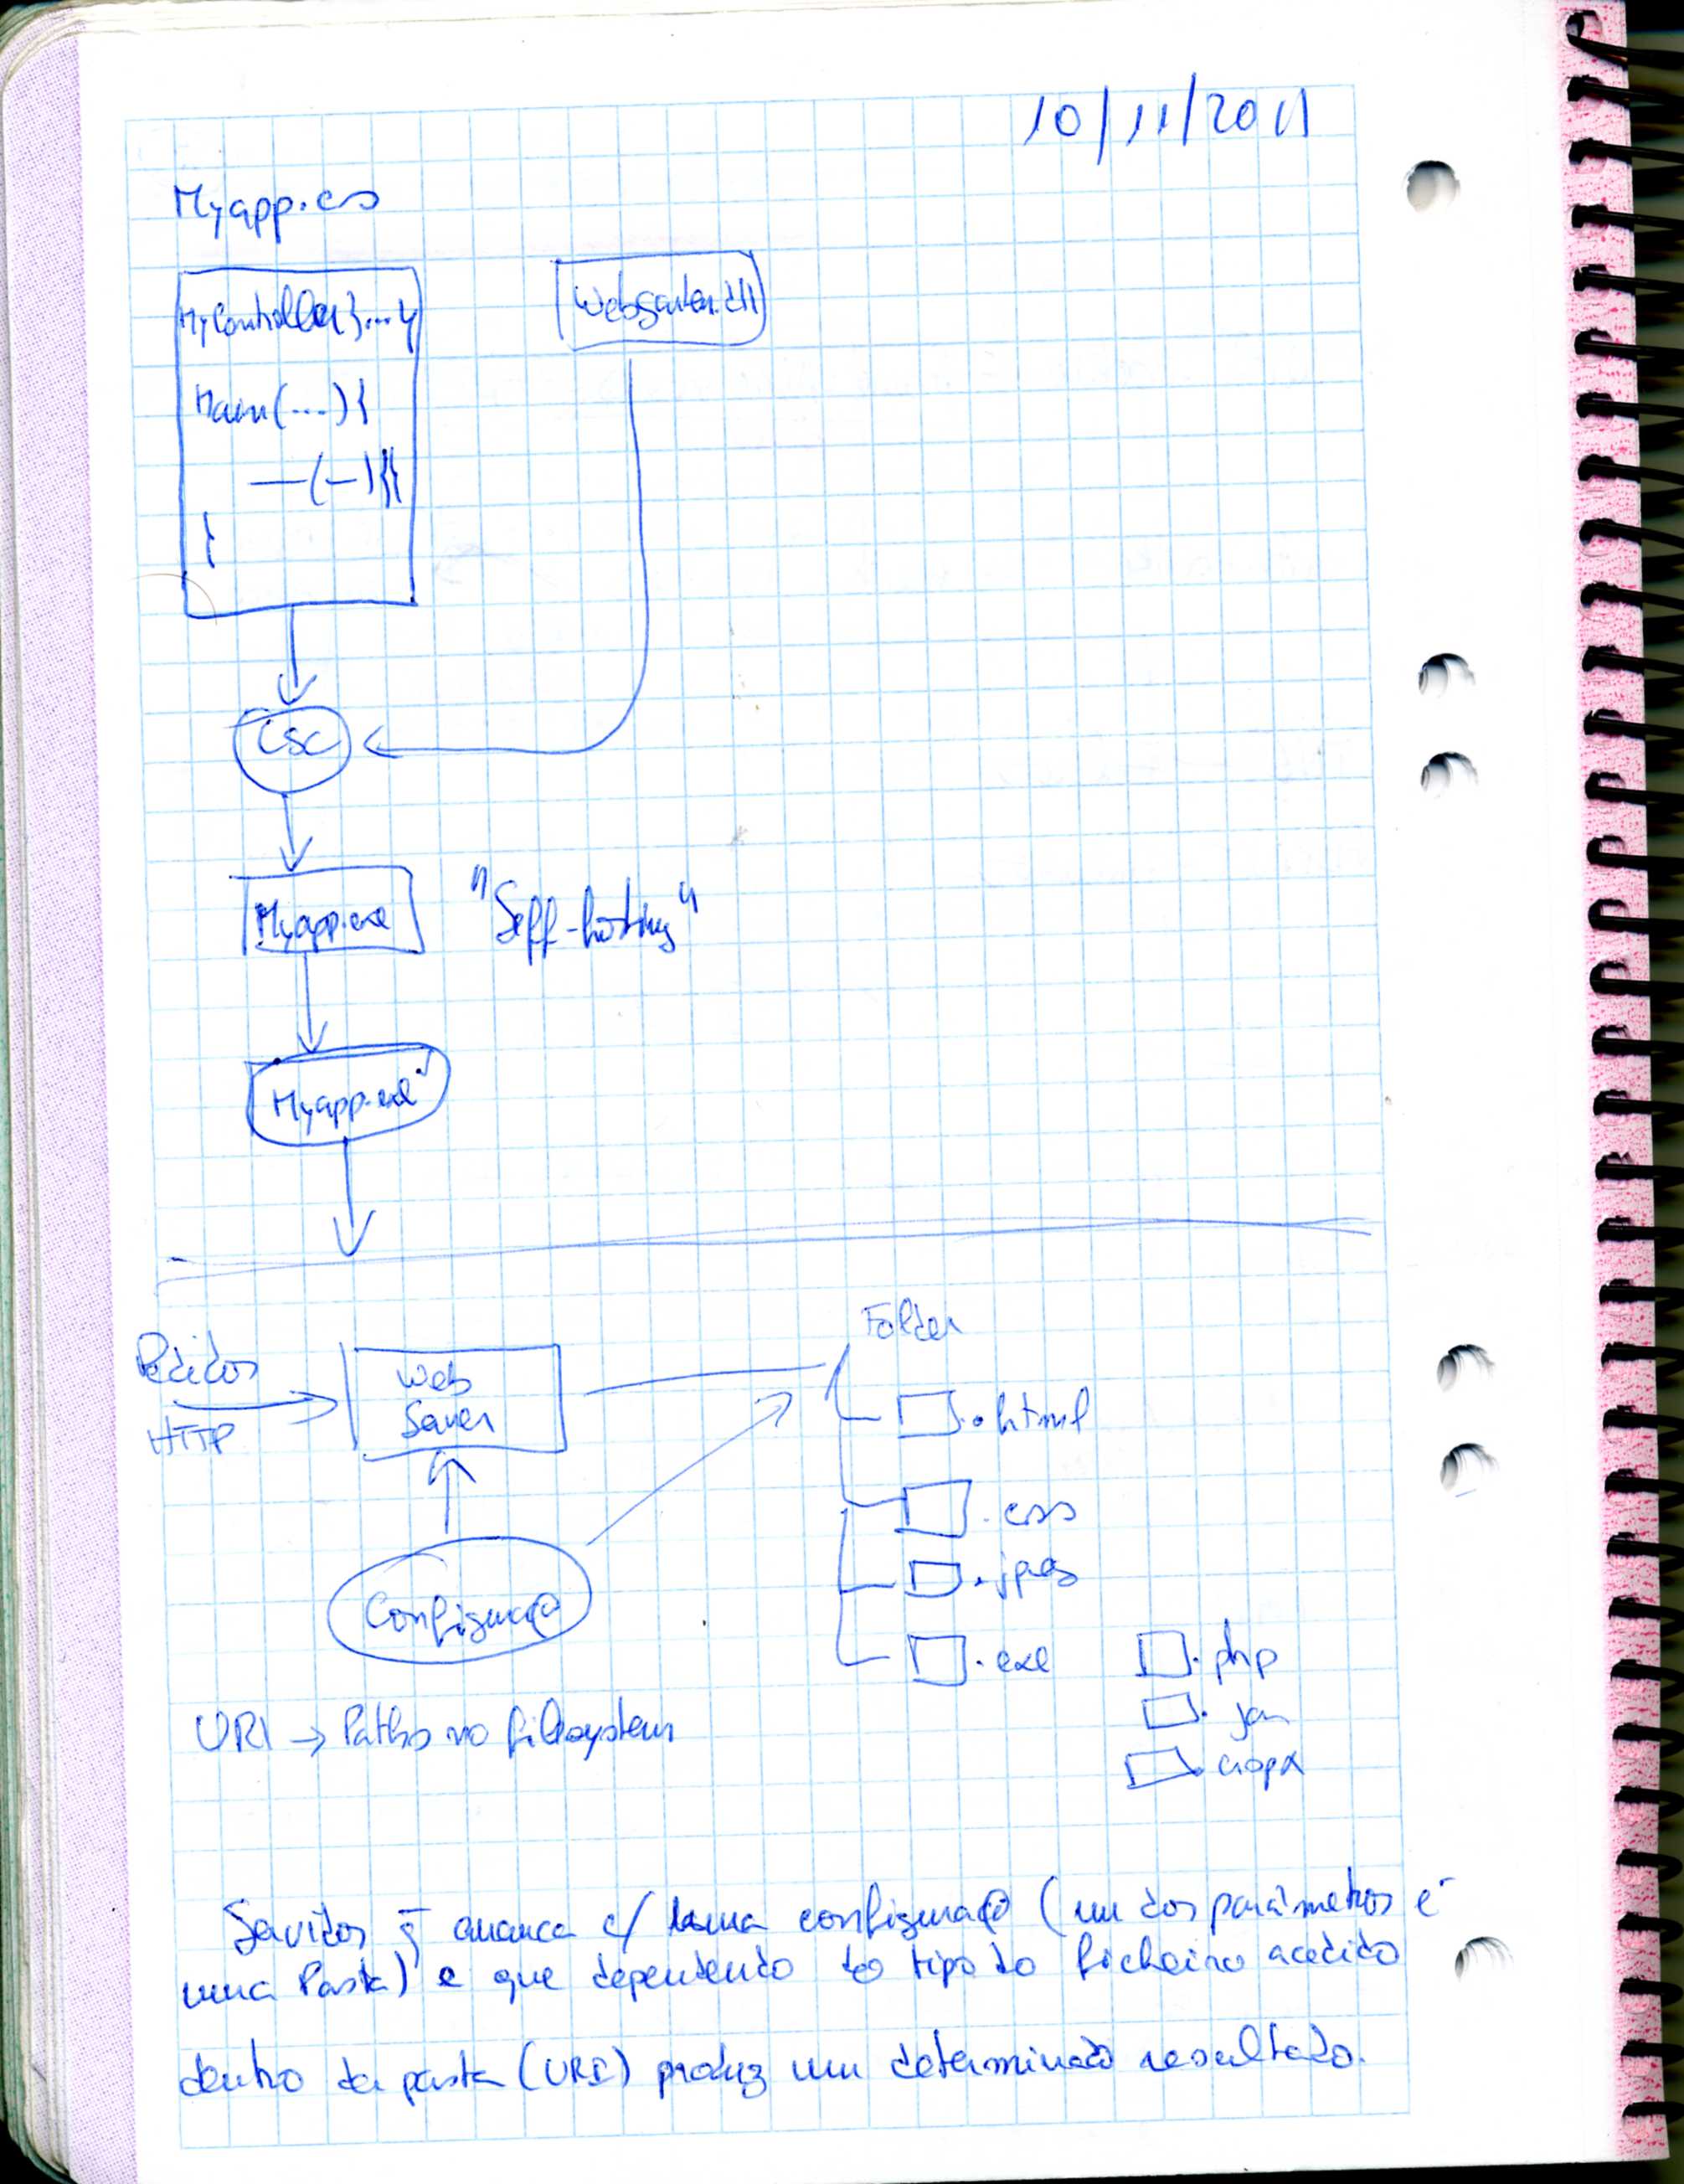 10/11/2011
Myapp.cs
MyController{...}
Main(...){
—(—){}
}
csc
Myapp.exe
"Self-hosting"
Myapp.exe
Folder
Pedidos
HTTP
Web
Server
.html
.css
.jpeg
Configuraç@
.exe
.php
.aspx
URI → Paths no filesystem
Servidor q̄ arranca c/ uma configuraç@ (um dos parâmetros é
uma Pasta) e que dependendo do tipo do ficheiro acedido
dentro da pasta (URI) produz um determinado resultado.